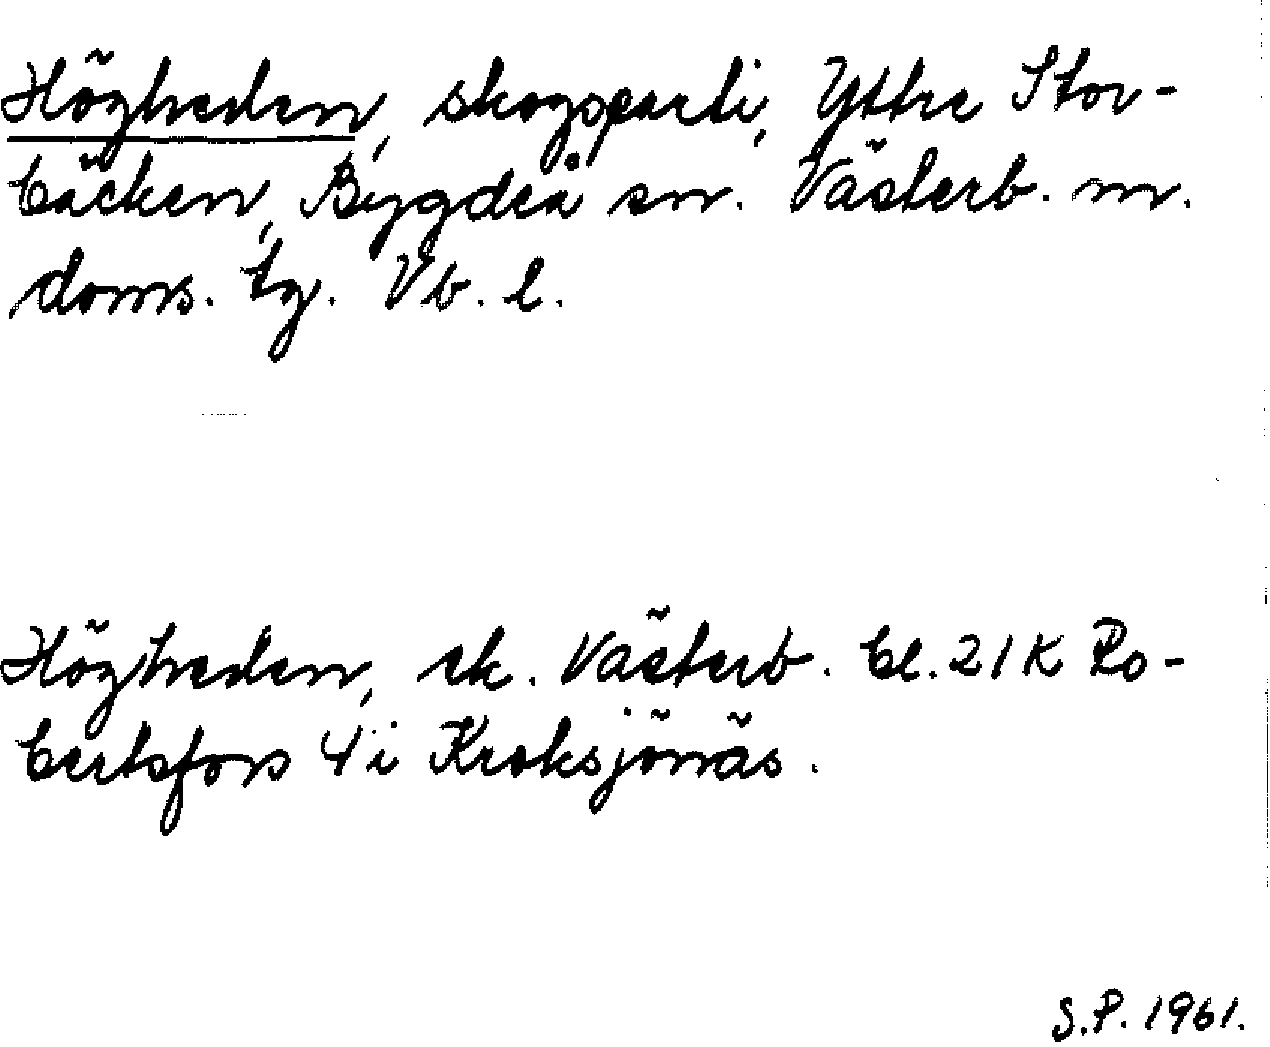 Högheden, skogsparti, Yttre Stor-
bäcken, Bygdeå sn. Västerb. m.
doms. tg. Vb. l.
Högheden, ek. Västerb. bl. 21K Ro-
bertsfors 4 i Kroksjönäs.
S.P. 1961.